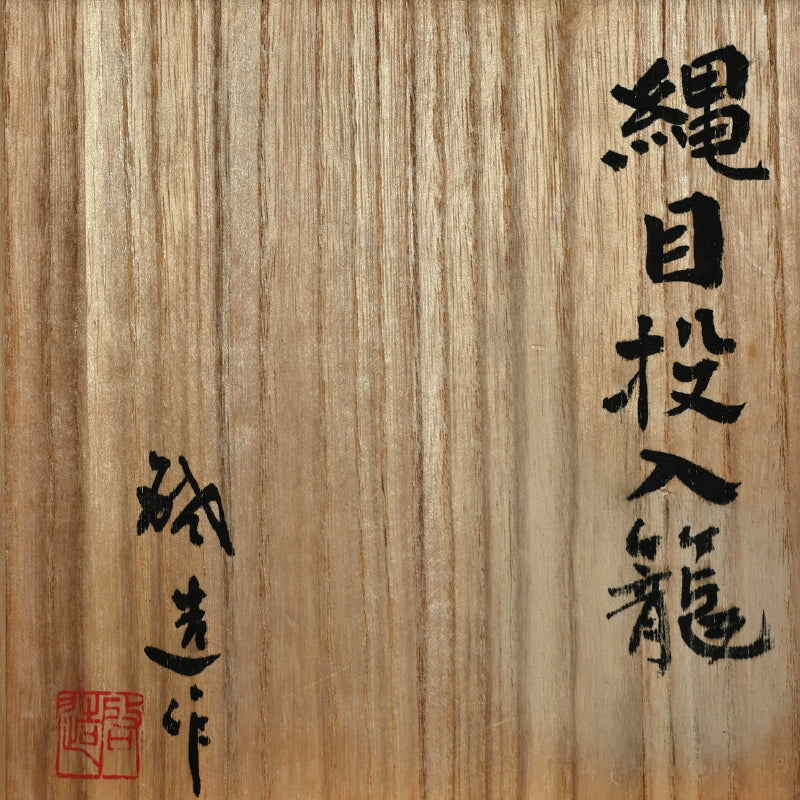 縄目投入籠
造作